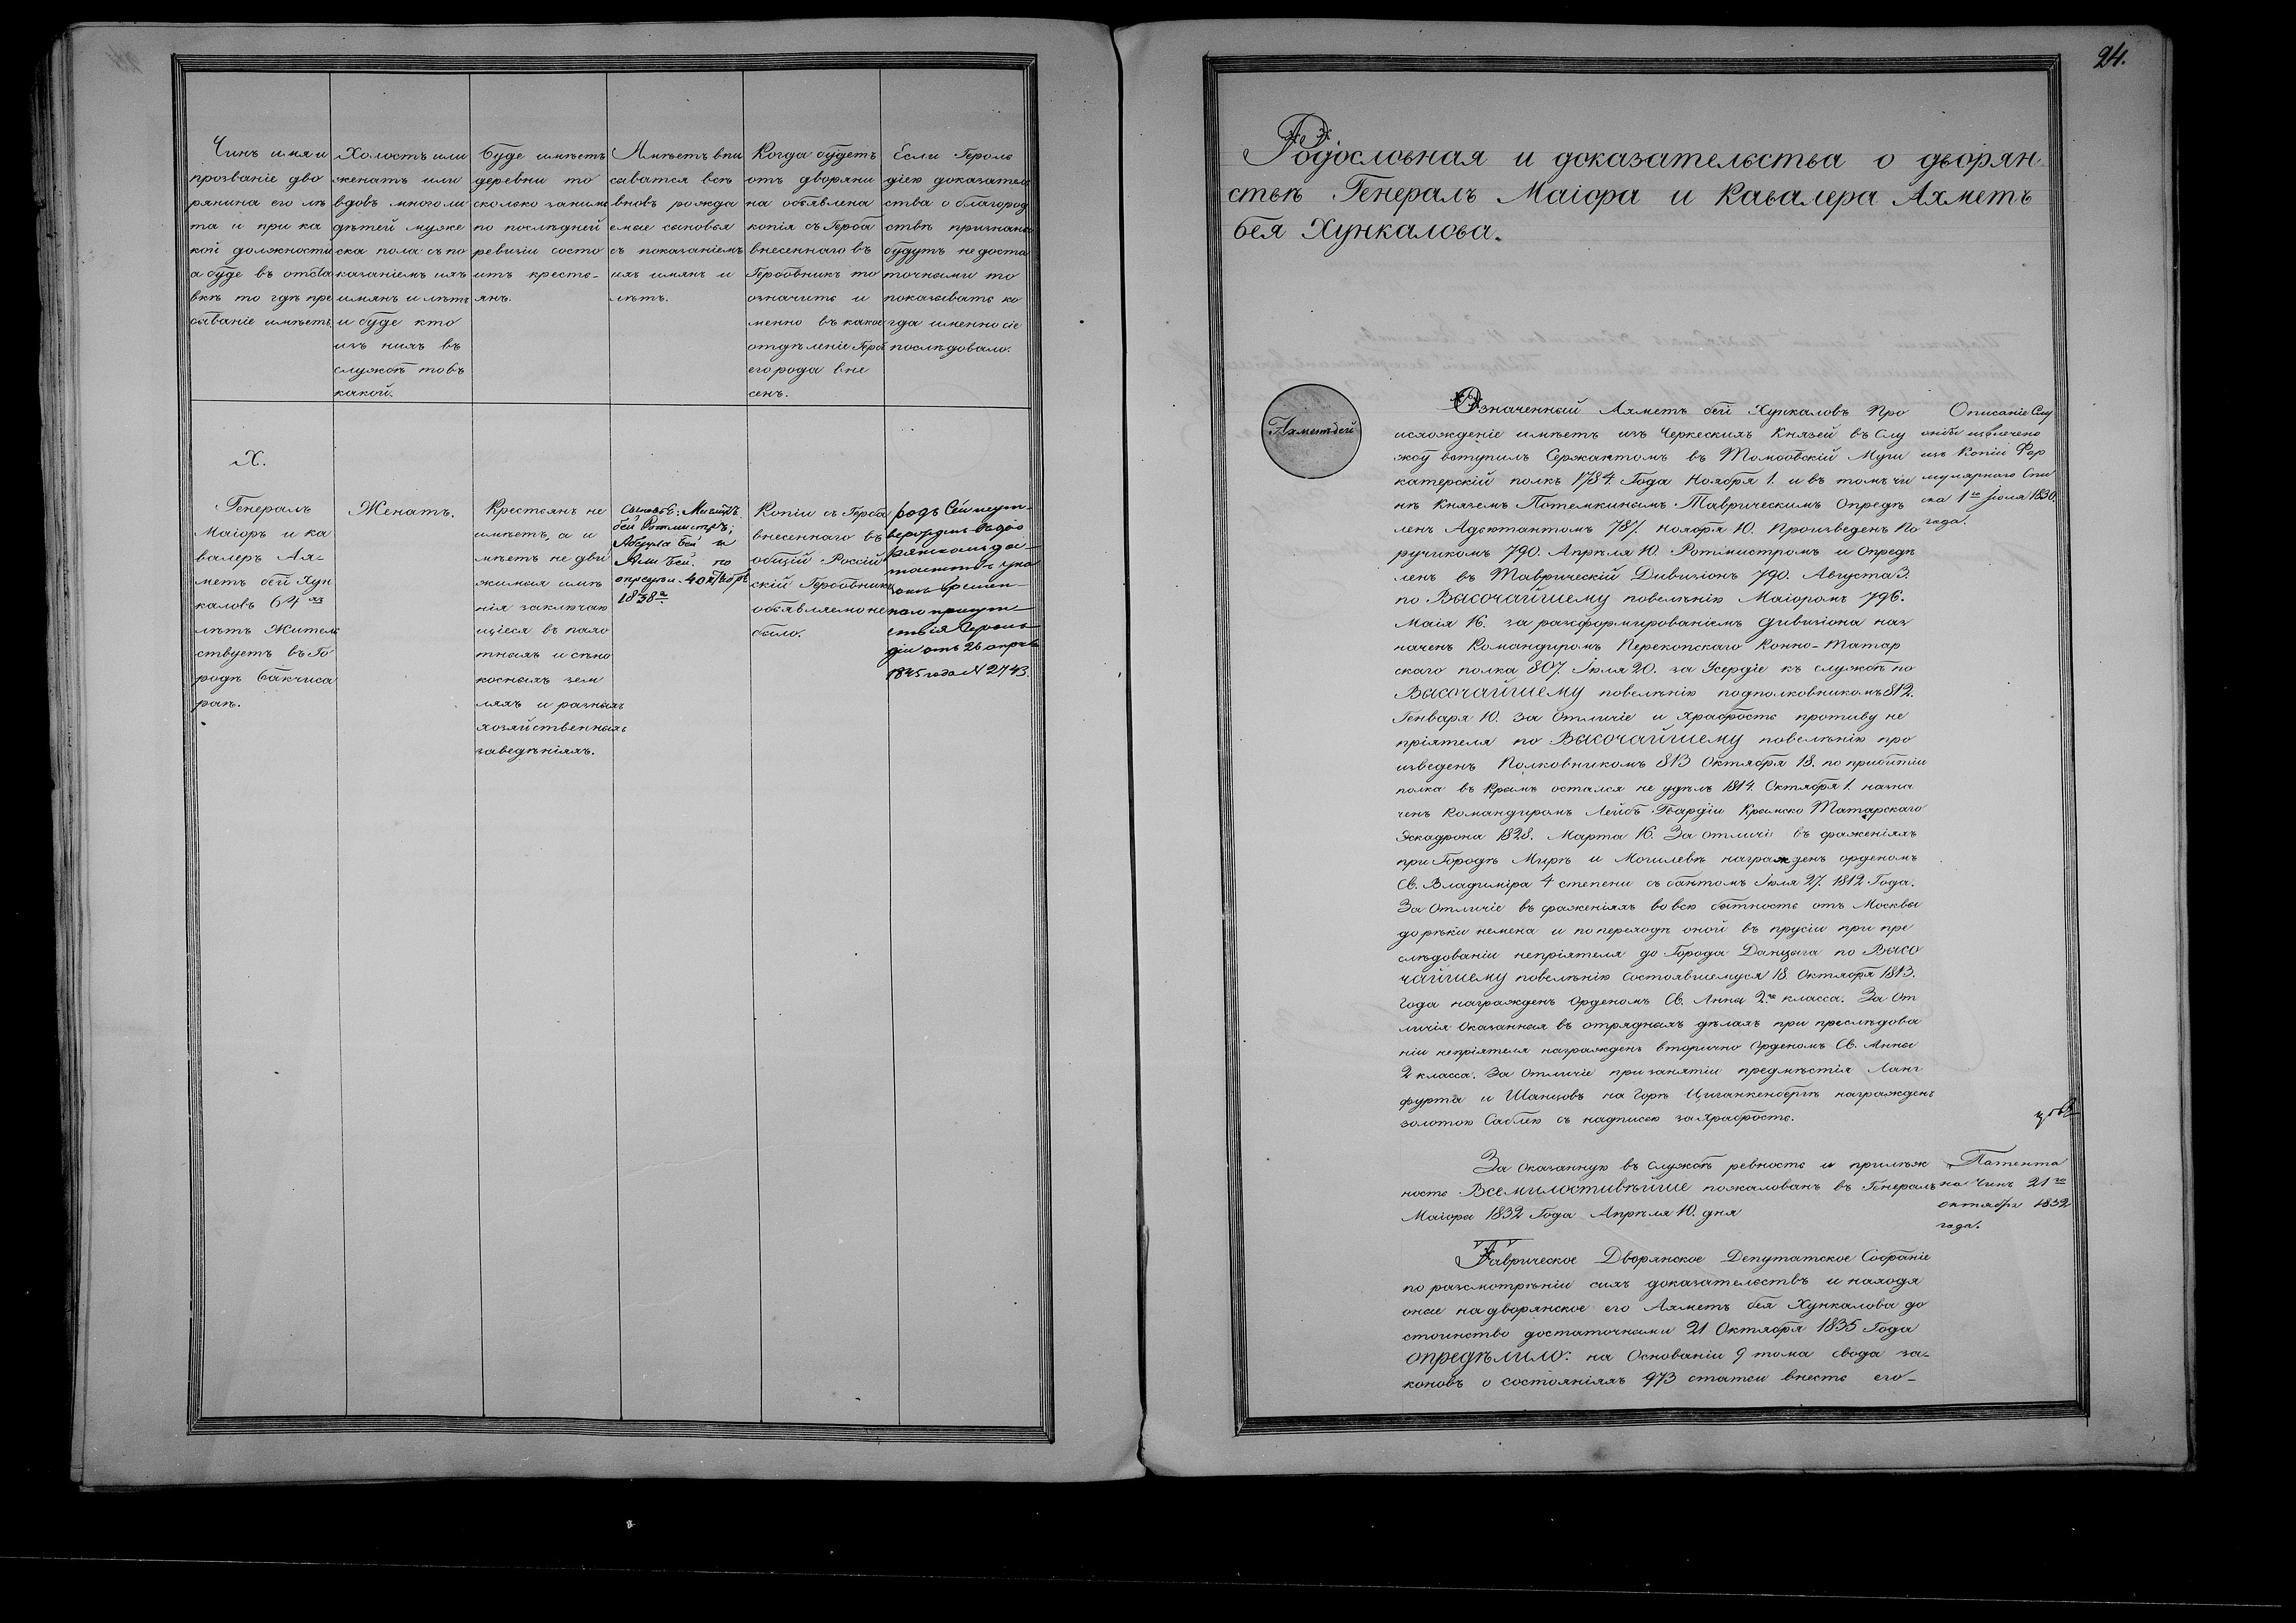 24.
Чинъ имя и
прозваніе дво
рянина его лѣ
та и при ка
кой должности
а буде въ отста
вкѣ то гдѣ пре
бываніе имѣетъ
Холостъ или
женатъ или
вдовъ много ли
дѣтей муже
ска пола съ по
казаніемъ ихъ
имянъ и лѣтъ
и буде кто
изъ нихъ въ
службѣ то въ
какой.
Буде имѣетъ
деревни то
сколько за ними
по послѣдней
ревизіи состо
итъ кресть-
янъ.
Имѣетъ впи
сыватся всѣ
вновь рожда
емые сыновья
съ показаніемъ
ихъ имянъ и
лѣтъ.
Когда будетъ
отъ дворяни
на объявлена
копія съ Герба
внесеннаго въ
Гербовникъ то
означить и
менно въ какое
отдѣленіе Гербъ
его рода вне
сенъ.
Если Героль
діею доказатель
ства о благород
ствѣ признаны
будутъ не доста
точными то
показывать ко
гда именно сіе
послѣдовало.
Х.
Генералъ
Маіоръ и ка
валеръ Ах-
метъ бей Хун
каловъ 64 хъ
лѣтъ Житель
ствуетъ въ Го
родѣ Бакчиса
раѣ.
Женатъ.
Крестьянъ не
имѣетъ, а и
мѣетъ не дви
жимыя имѣ
нія заключаю
щіеся въ пахо
тныхъ и сѣно
косныхъ зем
ляхъ и разныхъ
хозяйственныхъ
заведѣніяхъ.
Сыновья:
бей Ротмистръ;
Абдулла бей и
Али бей. по
1838 г.
Копіи съ Герба
внесеннаго въ
общій Россій
скій Гербовникъ
объявляемо не
было.
родъ Сей неут-
вержденъ въ дво
рянскомъ до-
стоинствѣ ука
зомъ времен-
наго присут-
ствія Героль
діи отъ 26 апрѣля
1845 года N 2743.
Родословная и доказательства о дворян
ствѣ Генералъ Маіора и Кавалера Ахметъ
бея Хункалова.
Ахметъ бей
Означенный Ахметъ бей Хункаловъ Про
исхожденіе имѣетъ изъ Черкескихъ Князей въ Слу
жбу вступилъ Сержантомъ въ Томбовскій Муш
катерскій полкъ 1784 Года Ноября 1. и въ томъ чи
нѣ Княземъ Потемкинымъ Таврическимъ Опредѣ
ленъ Адьютантомъ 787. ноября 10. Произведенъ По
ручикомъ 790. Апрѣля 10. Ротмистромъ и Опредѣ
ленъ въ Таврическій Дивизіонъ 790. Августа 3.
по Высочайшему повелѣнію Маіоромъ 796.
Маія 16. за расформированіемъ дивизіона наз
наченъ Командиромъ Перекопскаго Конно-Татар
скаго полка 807. Іюля 20. за Усердіе къ службѣ по
Высочайшему повелѣнію подполковникомъ 812.
Генваря 10. За Отличіе и храбрость противу не
пріятеля по Высочайшему повелѣнію про
изведенъ Полковникомъ 813 Октября 18. по прибытіи
полка въ Крымъ остался не удѣлъ 1814. Октября 1. назна
ченъ Командиромъ Лейбъ Гвардіи Крымско Татарскаго
Эскадрона 1828. Марта 16. За отличіе въ сраженіяхъ
при Городѣ Мирѣ и Могилевѣ награжденъ орденомъ
Св. Владиміра 4 степени съ бантомъ Іюля 27. 1812 Года.
За Отличіе въ сраженіяхъ во всю бытность отъ Москвы
до рѣки немена и по переходѣ оной въ прусіи при пре
слѣдованіи непріятеля до Города Данцыга по Высо
чайшему повелѣнію Состоявшемуся 18. Октября 1813.
Года награжденъ Орденомъ Св. Анны 2го класса. За От
личія Оказанныя въ отрядныхъ дѣлахъ при преслѣдова
ніи непріятеля награжденъ вторично Орденомъ Св. Анны
2 класса. За Отличіе при занятіи предмѣстія Ланг
фурта и Шанцовъ на Горѣ Циганкенбергѣ награжденъ
золотою Саблею съ надписью за храбрость.
За Оказанную въ службѣ ревность и прилѣж
ность Всемилостивѣйше пожалованъ въ Генералъ
Маіоры 1832 Года Апрѣля 10. дня
Таврическое Дворянское Депутатское Собраніе
по разсмотрѣніи сихъ доказательствъ и находя
оные на дворянское его Ахметъ бея Хункалова до
стоинство достаточными 21 Октября 1835 Года
опредѣлило: на Основаніи 9 тома свода за-
коновъ о состояніяхъ 973 статьи внесть его-
Описаніе Слу
жбы извлечено
изъ Копіи Фор
мулярнаго Спи
ска 1го Іюля 1830.
года.
Патента
на Чинъ 21го
октября 1832
года.